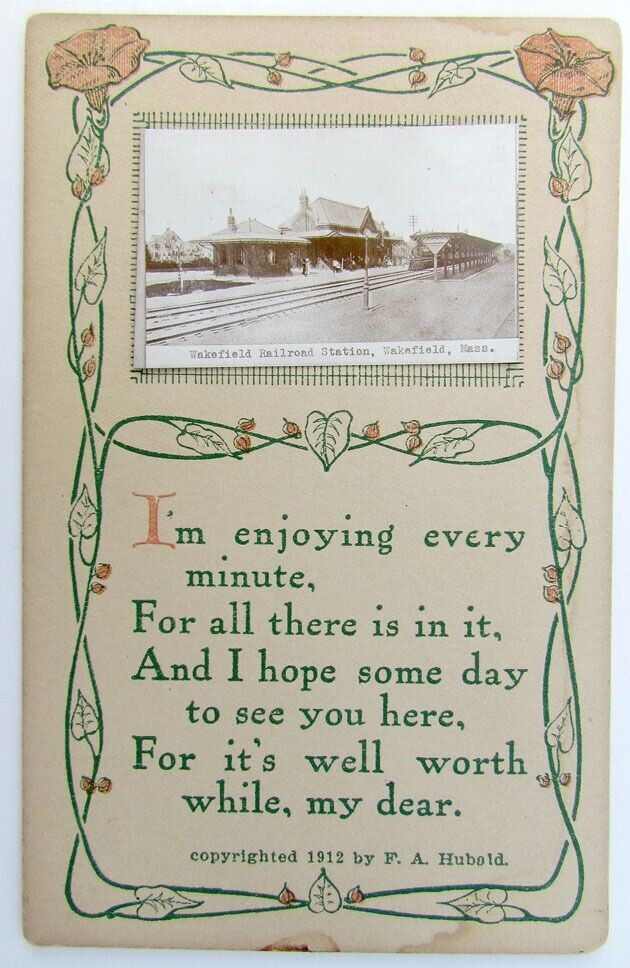 Wakefield Railroad Station, Wakefield, Mass.
I'm enjoying every
minute,
For all there is in it,
And I hope some day
to see you here,
For it's well worth
while, my dear.
copyrighted 1912 by F. A. Hubald.